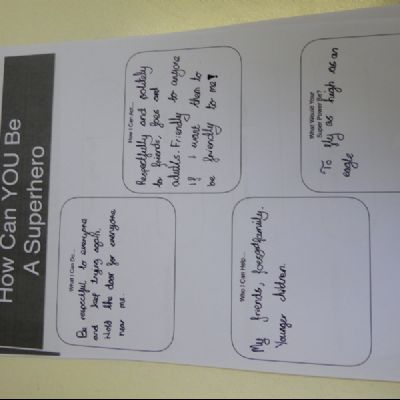 How Can YOU Be
A Superhero
What I Can Do...
Be respectful to everyone
and keep trying again.
Hold the door for everyone
near me.
How I Can Act...
Respectfully and politely
to friends, foes and
adults. Friendly to anyone
if I want them to
be friendly to me!
Who I Can Help...
My friends, family.
Younger children
What Would Your
Super Power Be?
To fly as high as an
eagle